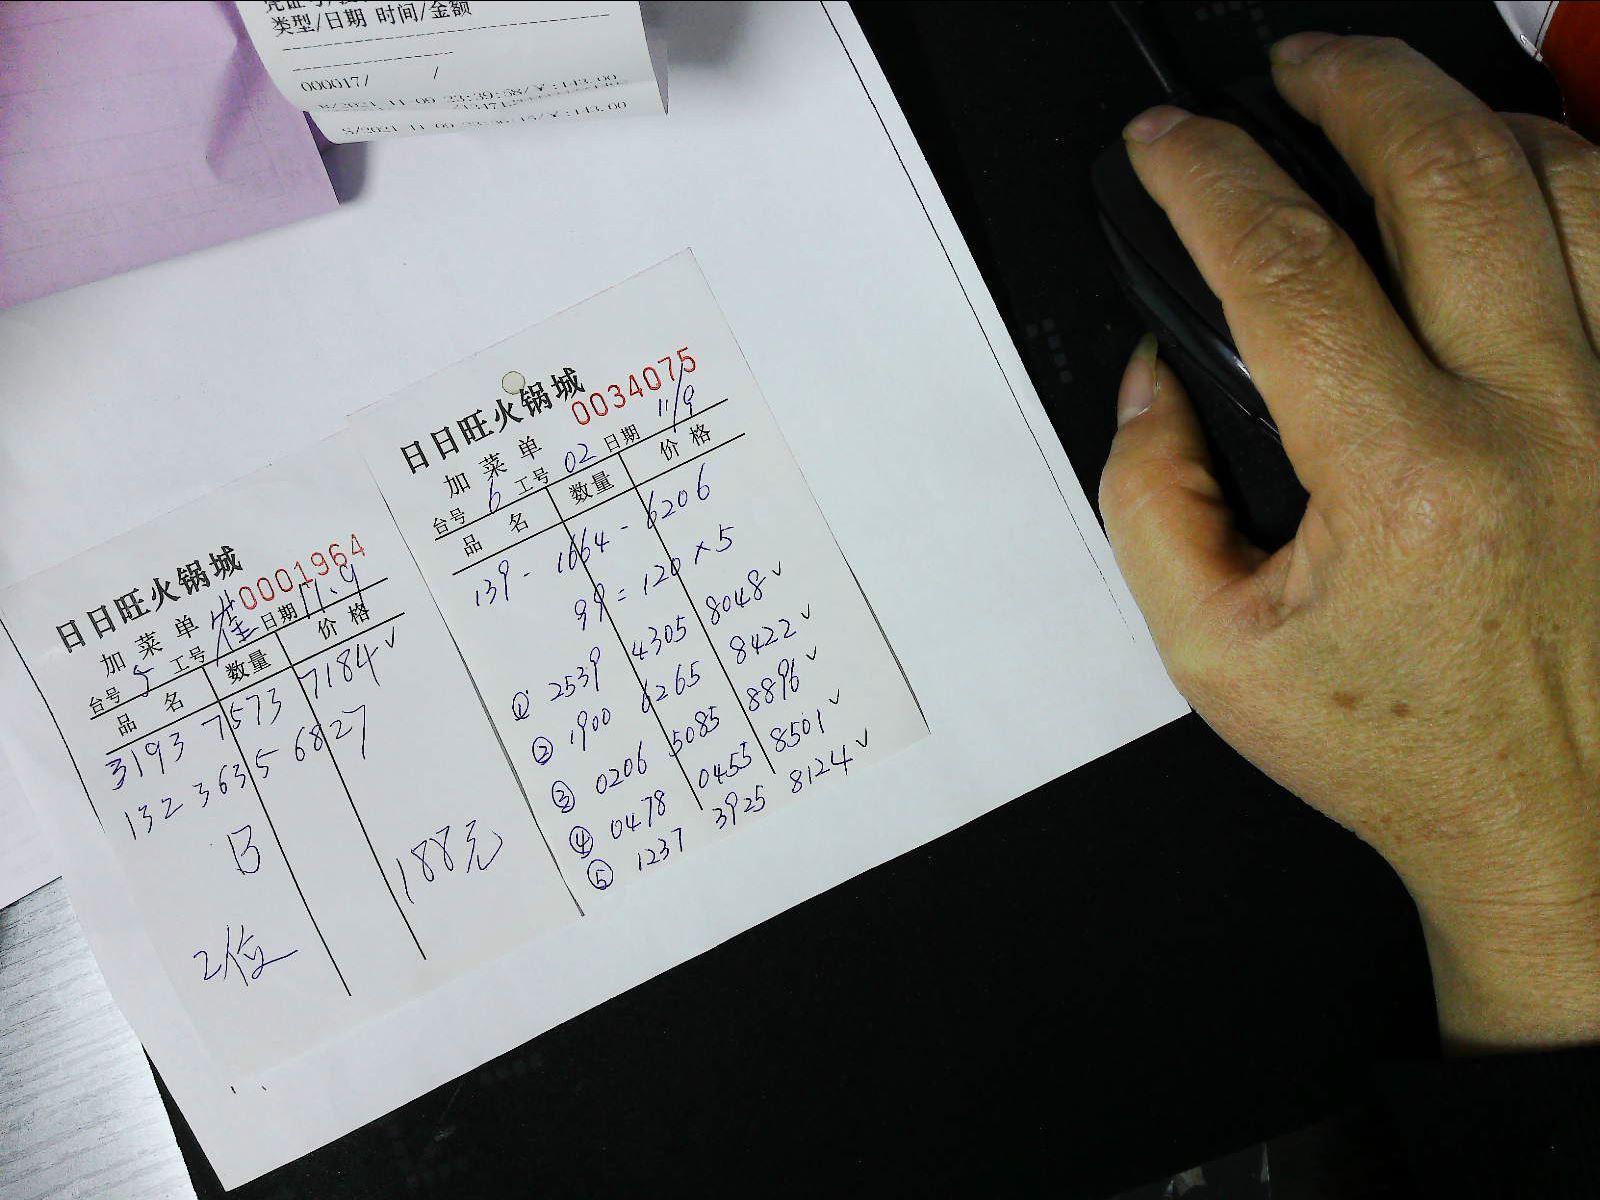 类型/日期 时间/金额
000017/ /
日日旺火锅城
0001964
加菜单
台号 5 工号 崔 日期 11.9
品名 数量 价格
3193 7573 7184 ✓
132 3635 6827
B
188元
2位
日日旺火锅城
0034075
加菜单
台号 6 工号 02 日期 11/9
品名 数量 价格
139 - 1664 - 6206
99 = 120 × 5
① 2539 4305 8048 ✓
② 1900 6265 8422 ✓
③ 0206 5085 8896 ✓
④ 0478 0455 8501 ✓
⑤ 1237 3925 8124 ✓